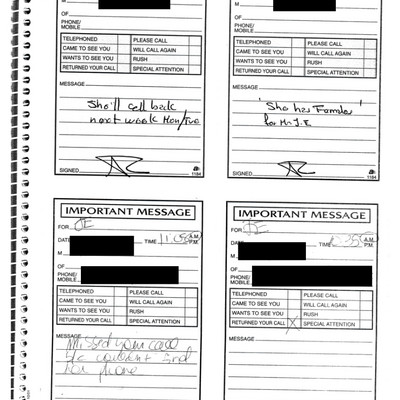 M
OF
PHONE/
MOBILE
TELEPHONED PLEASE CALL
CAME TO SEE YOU WILL CALL AGAIN
WANTS TO SEE YOU RUSH
RETURNED YOUR CALL SPECIAL ATTENTION
MESSAGE
She'll call back
next week Mon/Tue
SIGNED
1184
M
OF
PHONE/
MOBILE
TELEPHONED PLEASE CALL
CAME TO SEE YOU WILL CALL AGAIN
WANTS TO SEE YOU RUSH
RETURNED YOUR CALL SPECIAL ATTENTION
MESSAGE
She has
for Mr J.E
SIGNED
1184
IMPORTANT MESSAGE
FOR JE
DATE TIME A.M. P.M.
M
OF
PHONE/
MOBILE
TELEPHONED PLEASE CALL
CAME TO SEE YOU WILL CALL AGAIN
WANTS TO SEE YOU RUSH
RETURNED YOUR CALL SPECIAL ATTENTION
MESSAGE
Missed your call
couldn't find
phone
IMPORTANT MESSAGE
FOR JE
DATE TIME A.M. P.M.
M
OF
PHONE/
MOBILE
TELEPHONED PLEASE CALL
CAME TO SEE YOU WILL CALL AGAIN
WANTS TO SEE YOU RUSH
RETURNED YOUR CALL X SPECIAL ATTENTION
MESSAGE